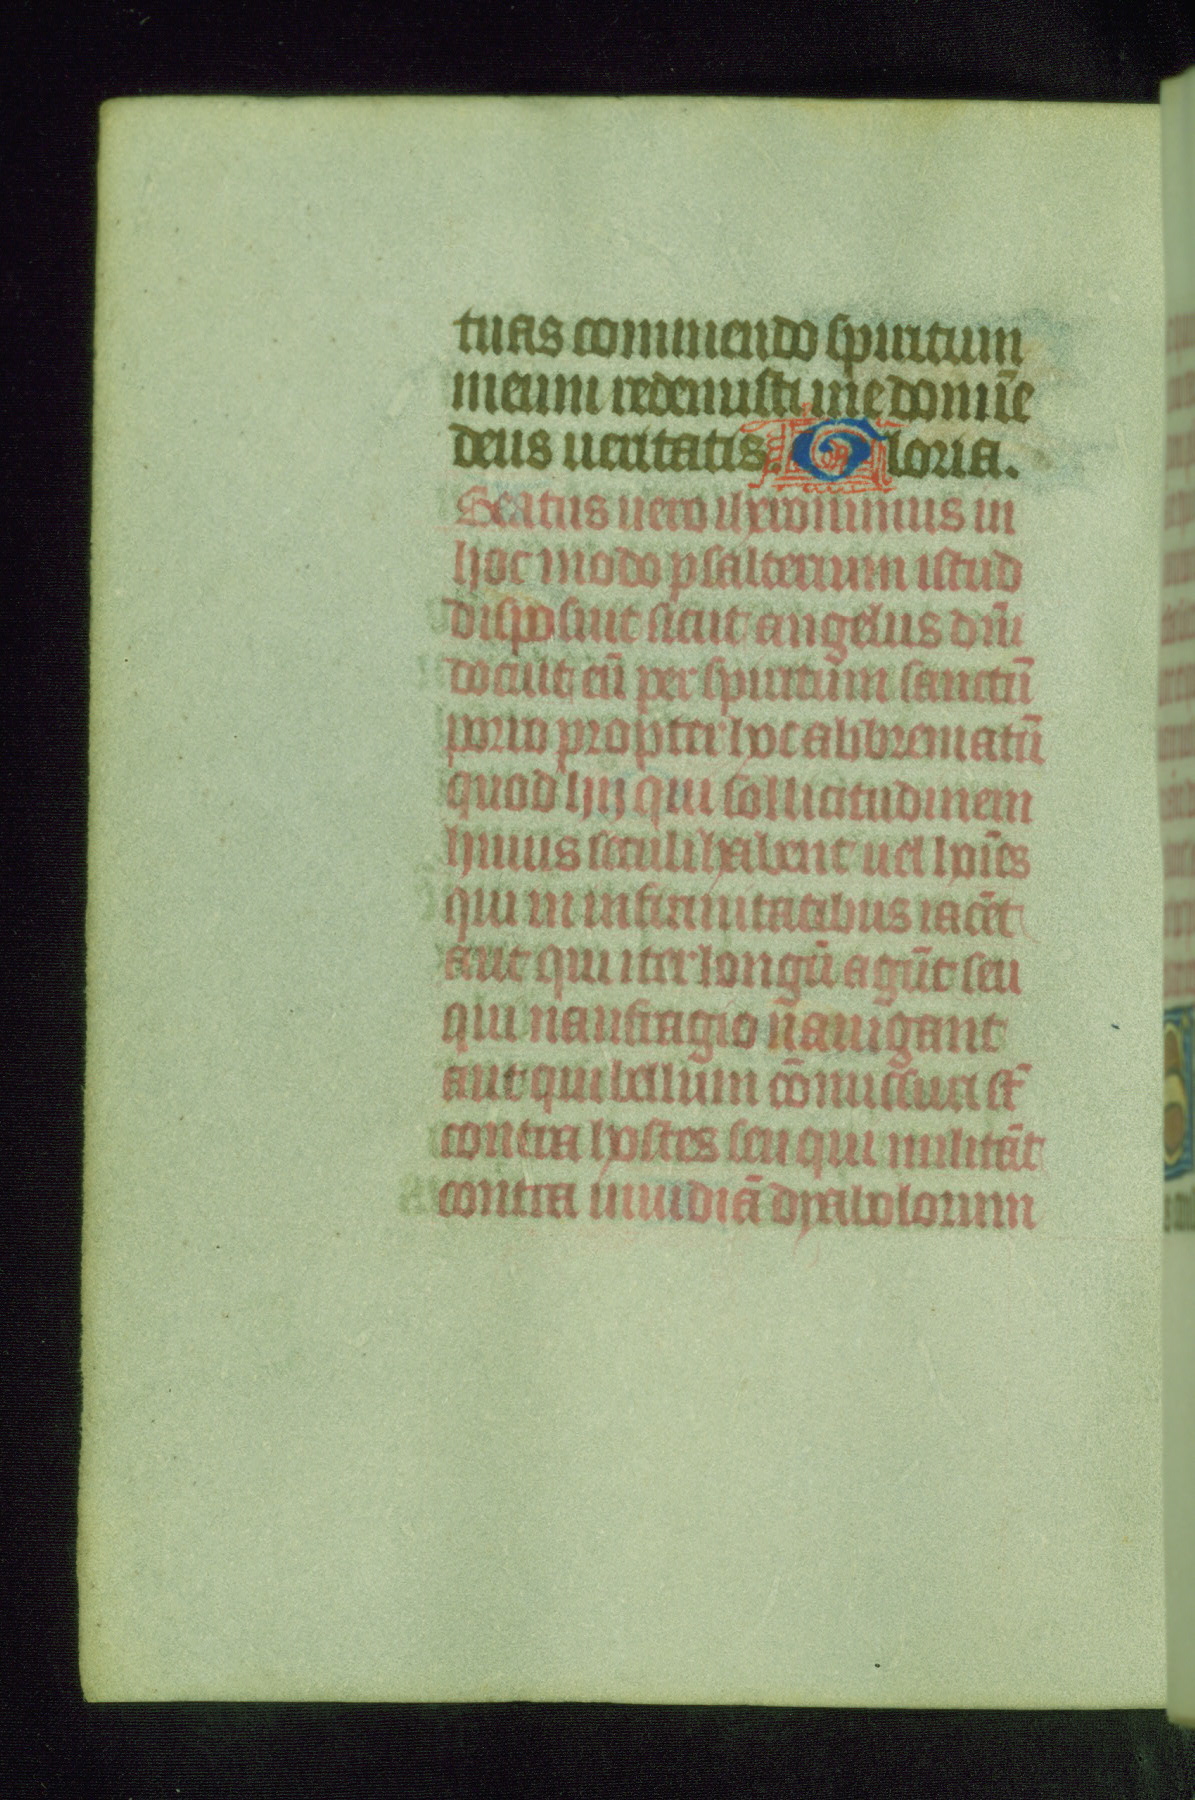 tuas commendo spiritum
meum redemisti me domĩe
deus ueritatis. Gloria.
Beatus uero iheronimus in
hoc modo psalterium istud
disposuit sicut angelus dñi
docuit eũ per spiritum sanctũ
porro propter hoc abbreuiatũ
quod hij qui sollicitudinem
huius seculi habent uel hoĩes
qui in infirmitatibus iacẽt
aut qui iter longũ agũt seu
qui naufragio nauigant
aut qui bellum cõmissuri st̃
contra hostes seu qui militãt
contra inuidiã dyabolorum